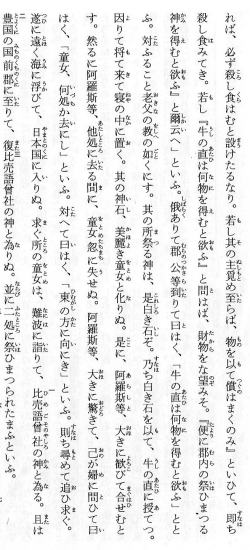 れば、必ず殺し食はむと設けたるなり。若し其の主覓め至らば、物を以て償はまくのみ』といひて、即ち
殺し食みてき。若し『牛の直は何物を得むと欲ふ』と問はば、財物をな望みそ。『便に郡内の祭ひまつる
神を得むと欲ふ』と爾云へ」といふ。俄ありて郡公等到りて曰はく、「牛の直は何物を得むと欲ふ」とと
ふ。対ふること老父の教の如くにす。其の所祭る神は、是白き石ぞ。乃ち白き石を以て、牛の直に授てつ。
因りて将て来て寝の中に置く。其の神石、美麗き童女と化りぬ。是に、阿羅斯等、大きに歓びて合せむと
す。然るに阿羅斯等、他処に去る間に、童女忽に失せぬ。阿羅斯等、大きに驚きて、己が婦に問ひて曰
はく、「童女、何処か去にし」といふ。対へて曰はく、「東の方に向にき」といふ。則ち尋めて追ひ求ぐ。
遂に遠く海に浮びて、日本国に入りぬ。求ぐ所の童女は、難波に詣りて、比売語曾社の神と為る。且は
豊国の国前郡に至りて、復比売語曾社の神と為りぬ。並に二処に祭ひまつられたまふといふ。